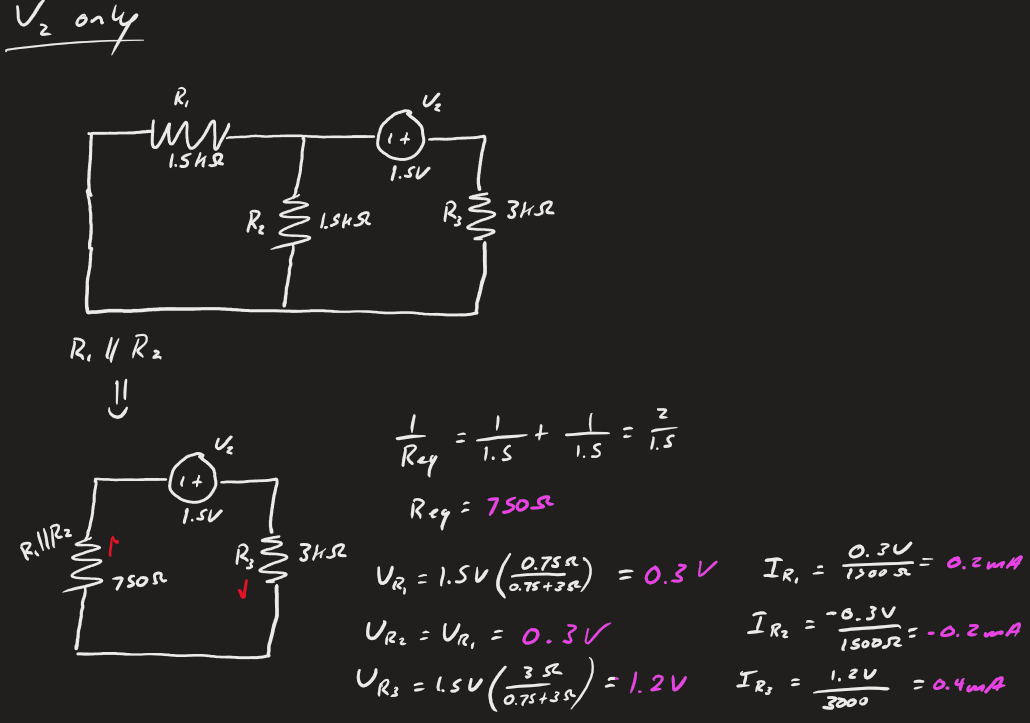 V₂ only
R₁
1.5kΩ
V₂
1.5V
R₂ 1.5kΩ
R₃ 3kΩ
R₁ // R₂
V₂
1.5V
R₁//R₂
750Ω
R₃ 3kΩ
1/Req = 1/1.5 + 1/1.5 = 2/1.5
Req = 750Ω
V_R₁ = 1.5V (0.75Ω / 0.75+3Ω) = 0.3V
V_R₂ = V_R₁ = 0.3V
V_R₃ = 1.5V (3Ω / 0.75+3Ω) = 1.2V
I_R₁ = 0.3V / 1500Ω = 0.2mA
I_R₂ = -0.3V / 1500Ω = -0.2mA
I_R₃ = 1.2V / 3000 = 0.4mA